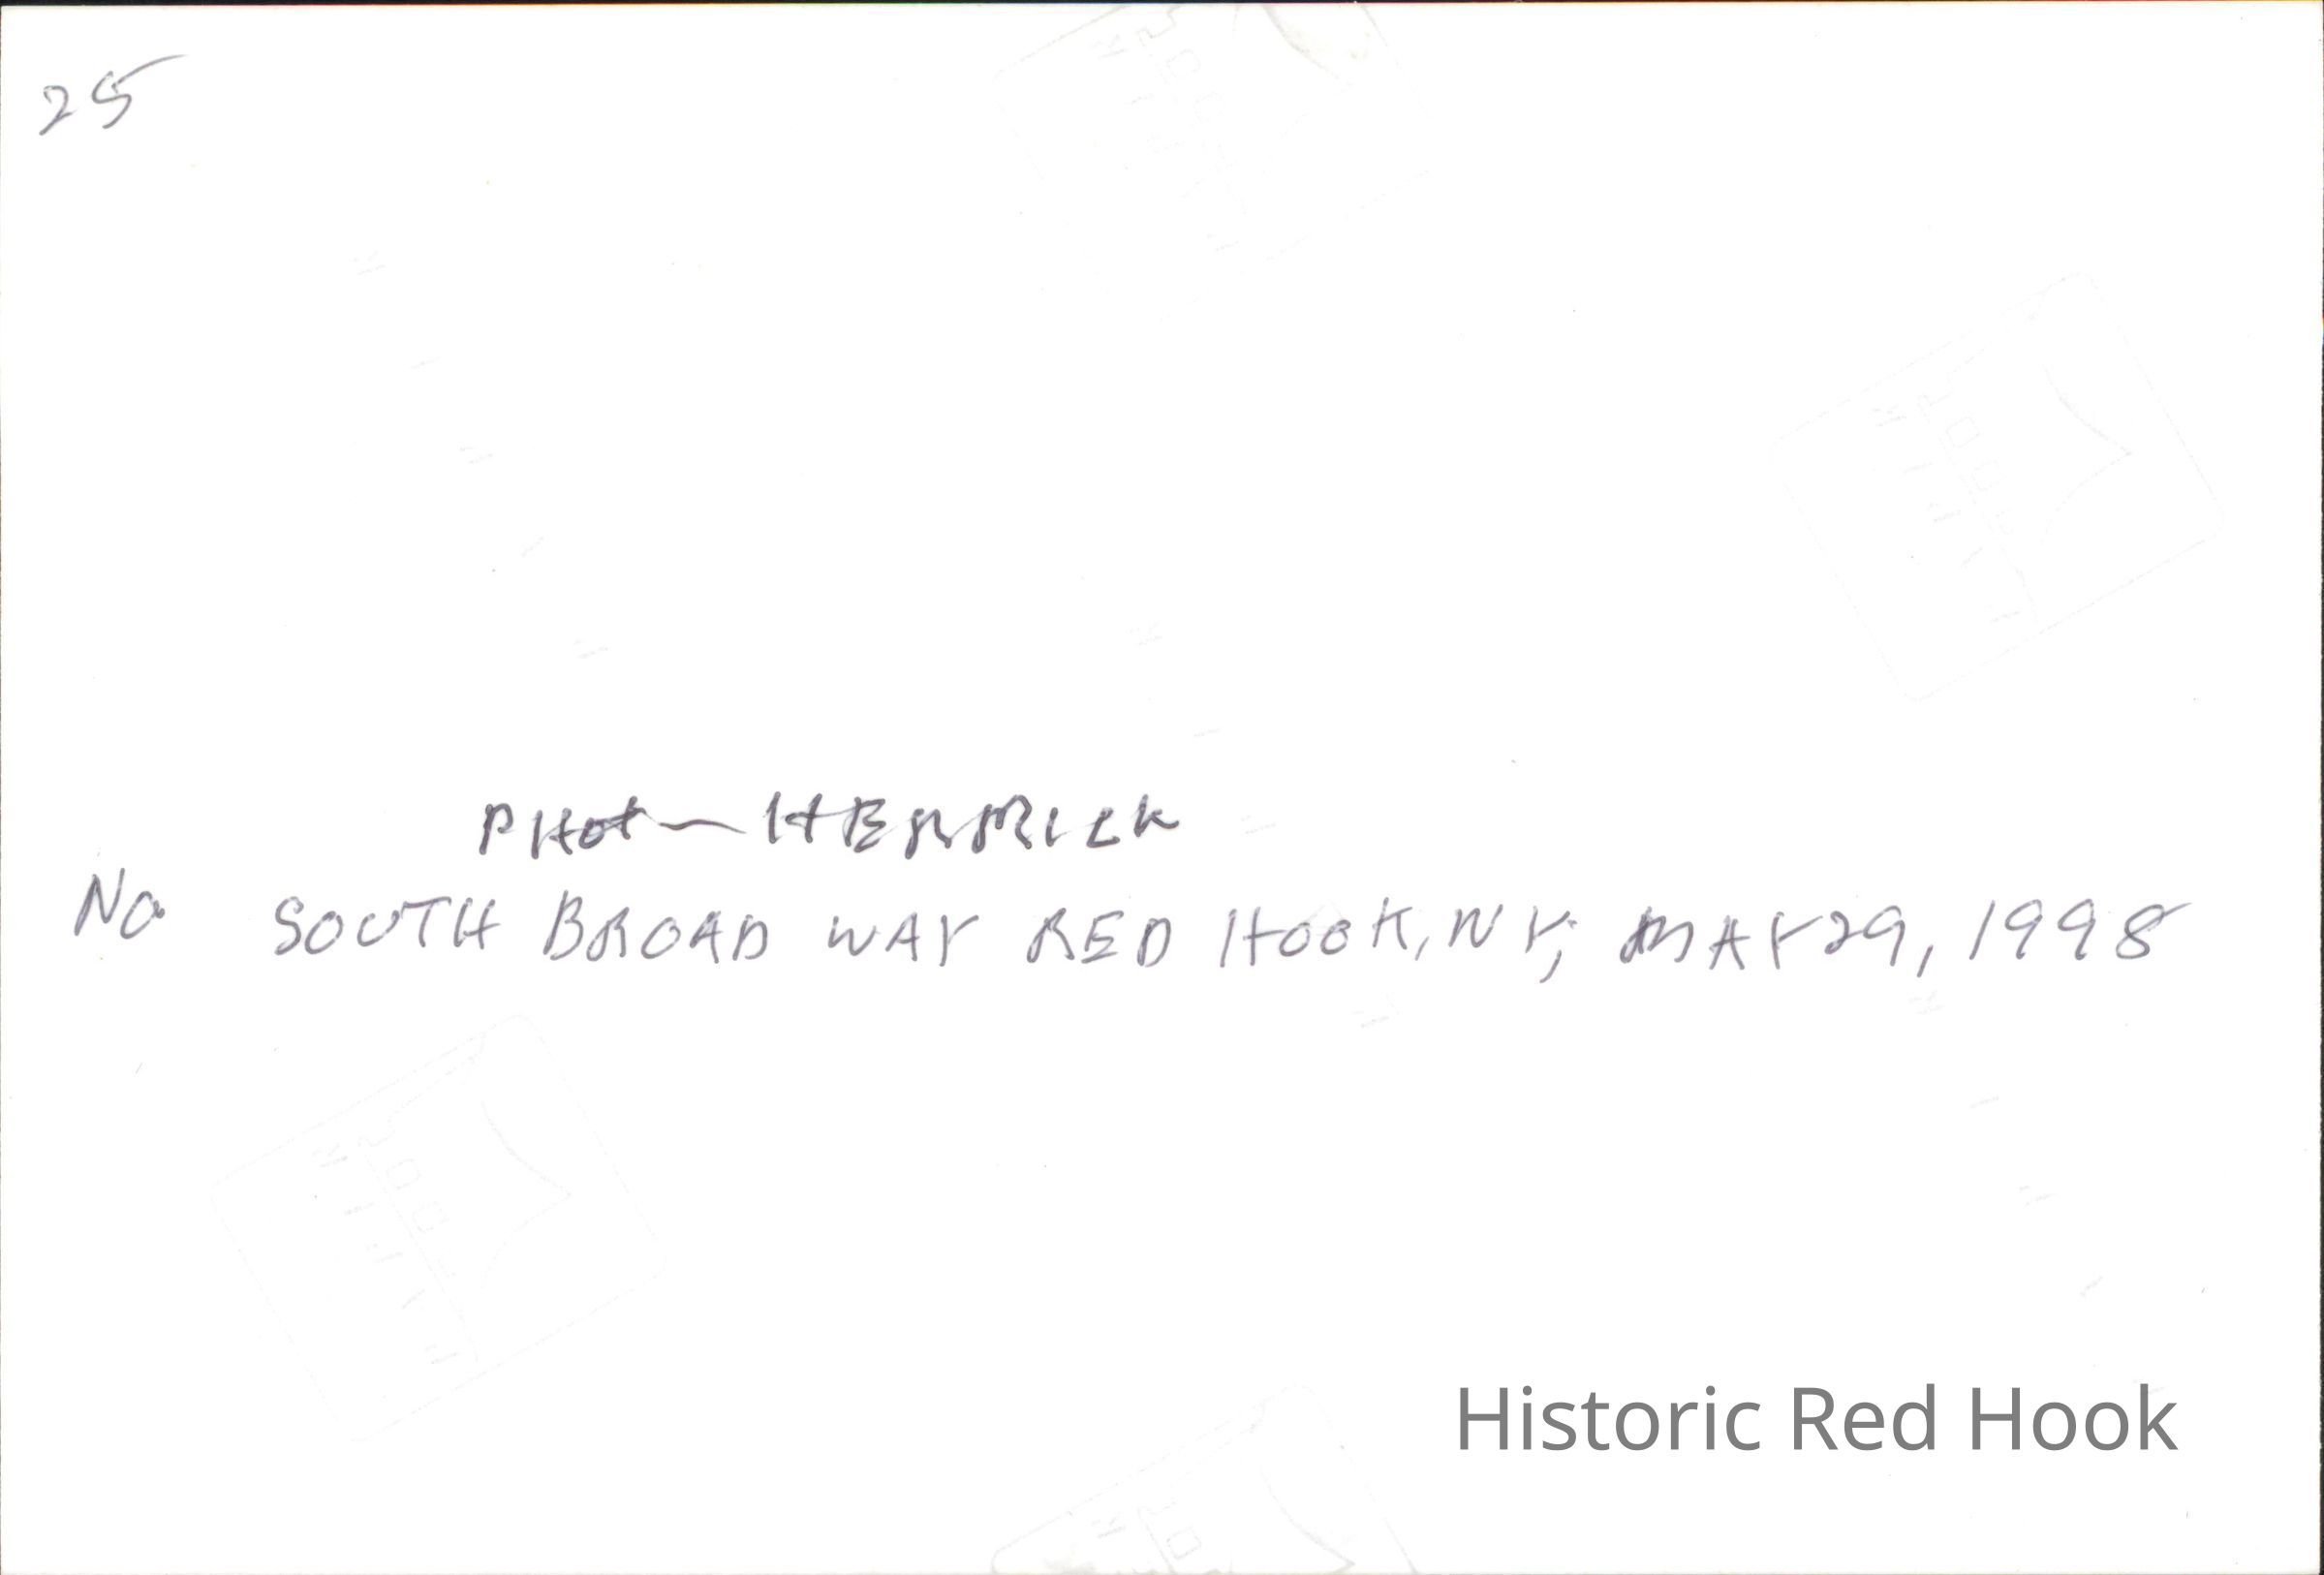 25
PHOT - HERRICK
No SOUTH BROAD WAY RED HOOK, NY, MAY 29, 1998
Historic Red Hook